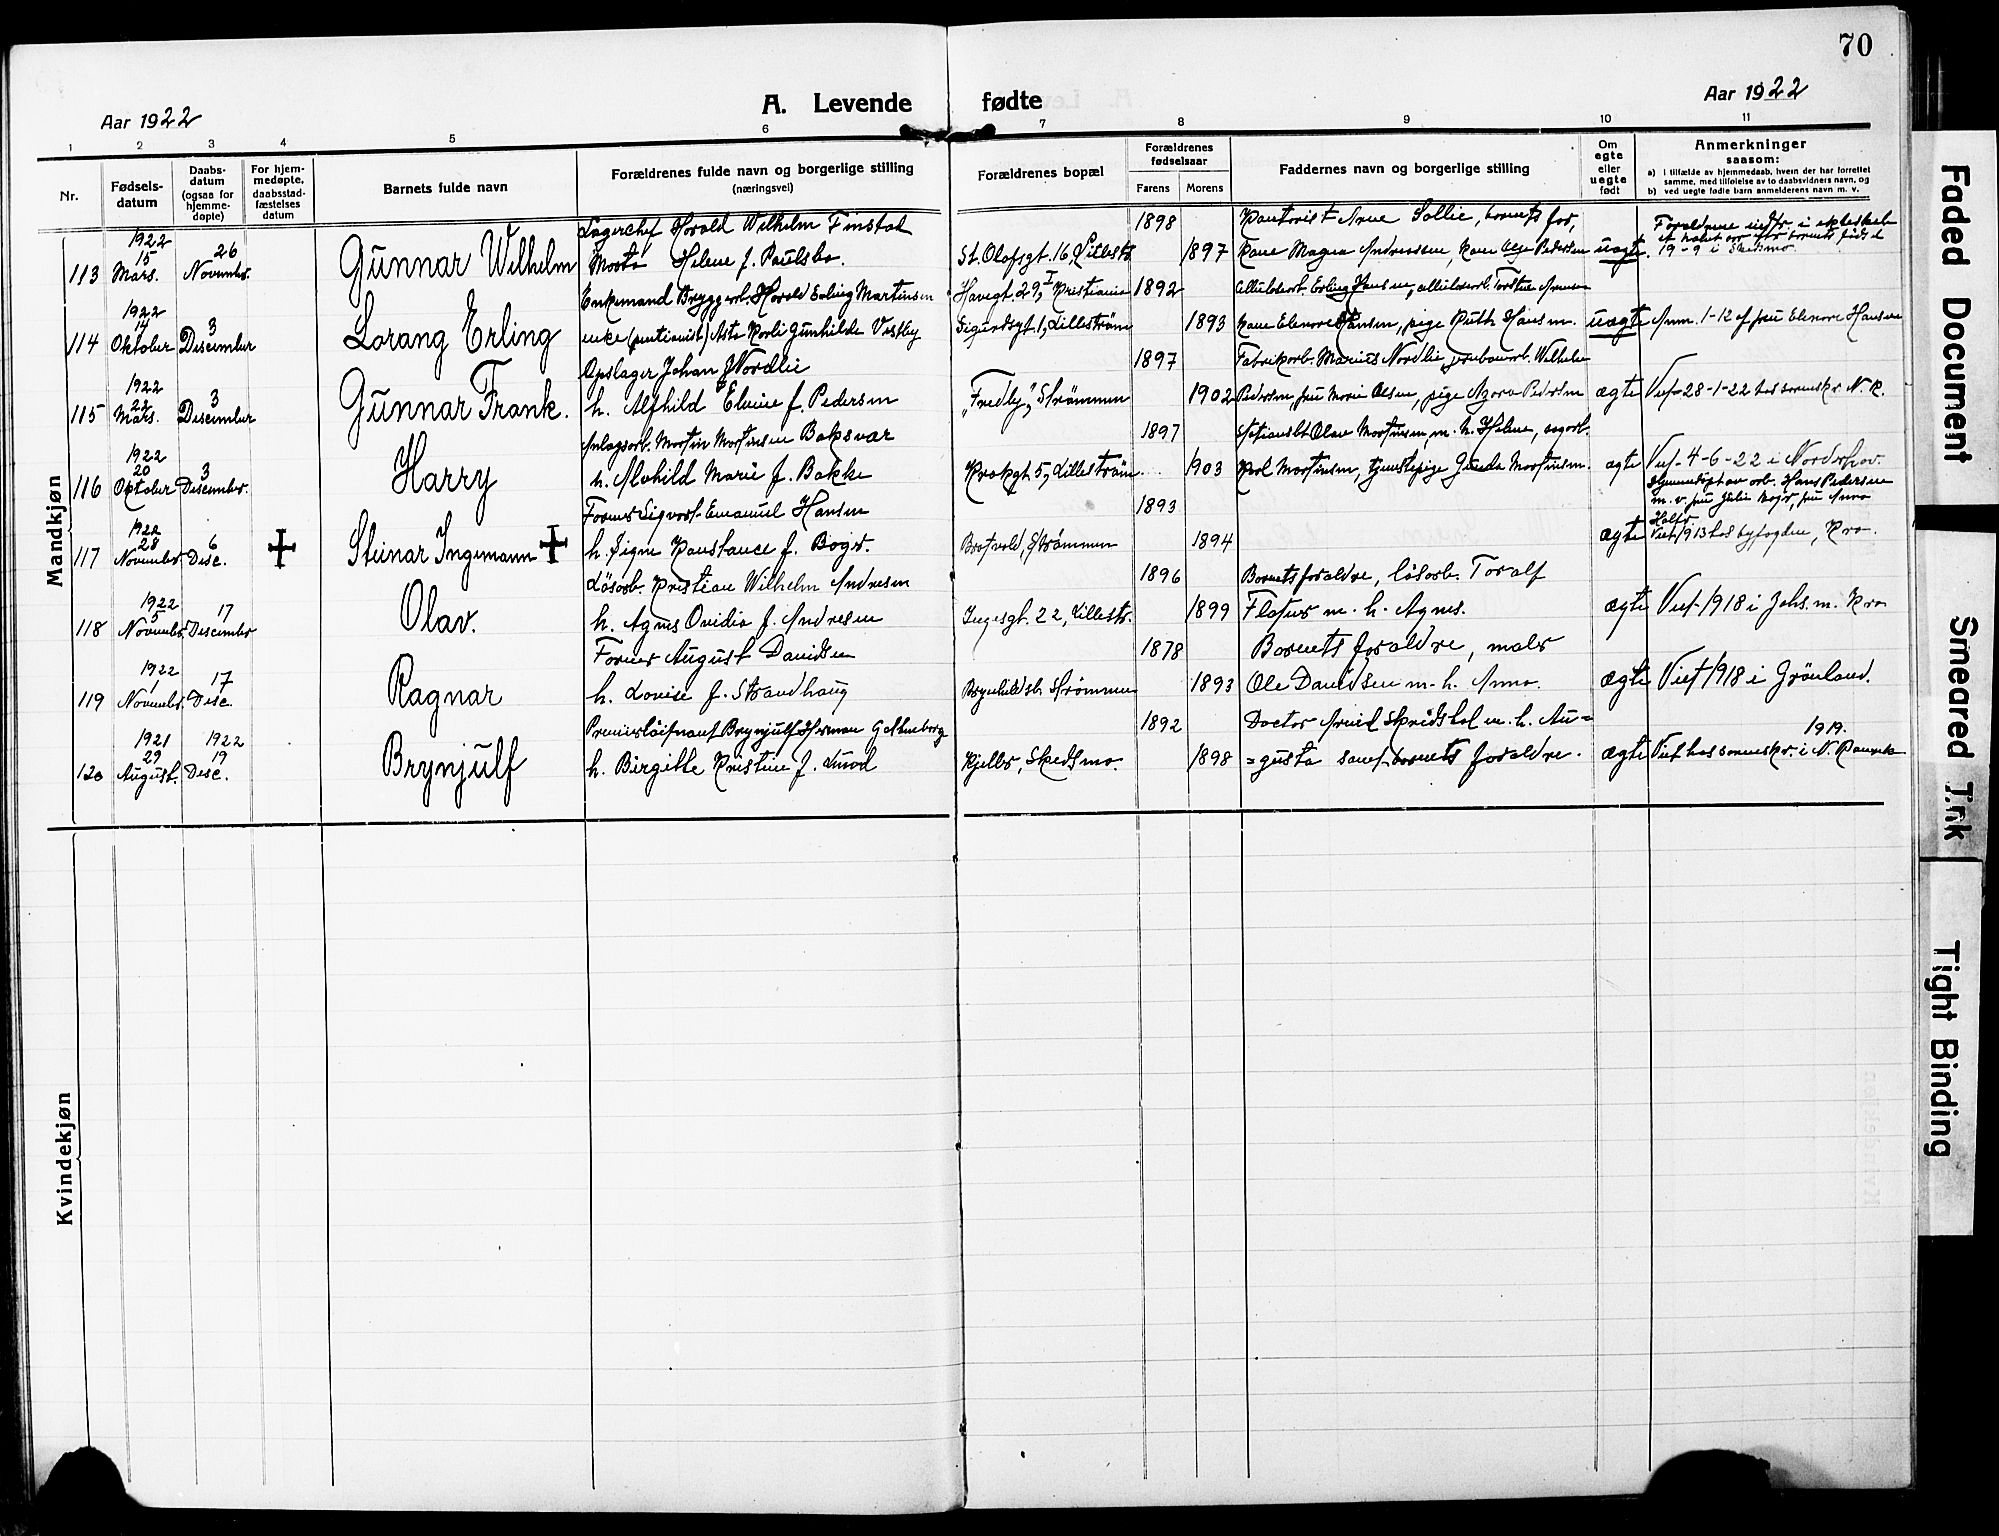 70
Aar 1922
A. Levende fødte
Aar 1922
1 2 3 4 5 6 7 8 9 10 11
Nr.
Fødsels-
datum
Daabs-
datum
(ogsaa for
hjemme-
døpte)
For hjem-
medøpte,
daabsstad-
fæstelses
datum
Barnets fulde navn
Forældrenes fulde navn og borgerlige stilling
(næringsvei)
Forældrenes bopæl
Forældrenes
fødselsaar
Farens Morens
Faddernes navn og borgerlige stilling
Om
egte
eller
uegte
født
Anmerkninger
saasom:
a) i tilfælde av hjemmedaab, hvem der har forrettet
samme, med tilføielse av to daabsvidners navn, og
b) ved uegte fødte barn anmelderens navn m. v.
Mandkjøn
Lagerchef Harald Wilhelm Finstad 1898 Kontorist Arne Sollie, barnets far,
113 1922 15 Mars. 26 November. Gunnar Wilhelm Marta Helene f. Paulsbo. St. Olafsgt. 16, Lillestr. 1897 Kone Magna Andreassen, Kone Pedersen uægte. 19-9 i Skedsmo.
Enkemand Bryggeriarb. Harald Erling Martinsen Havegt. 29, Kristiania 1892 Erling Hansen,
114 1922 14 Oktober 3 Desember Lorang Erling enke (pensionist) Asta Gunhilde Vestby Sigurdsgt. 1, Lillestrøm 1893 Kone Elenore Hansen, pige Ruth Hansen. uægte Anm. 1-12 af fru Elenore Hansen
Opslager Johan Nordlie 1897 Fabrikarb. Marius Nordlie, Wilhelm
115 1922 22 Mars. 3 Desember Gunnar Frank. h. Alfhild Elvine f. Pedersen "Fredly", Strømmen 1902 Pedersen, fru Marie Olsen, pige Pedersen ægte Viet 28-1-22 hos sorenskr. N. R.
Anlagsarb. Martin Martinsen Baksvær 1897 Olav Martinsen, m. h. Helene,
116 1922 20 Oktober 3 Desember. Harry h. Alvhild Marie f. Bakke Krokgt 5, Lillestrøm 1903 Martinsen, tjenestepige Gunda Martinsen. ægte Viet 4-6-22 i Norderhov.
Former Sigvart Emanuel Hansen 1893 Hjemmedøpt av arb. Hans Pedersen
m. v. fru Julie Boger, fru Anna
117 1922 28 November 6 Dese. Steinar Ingemann h. Signe Konstance f. Boger. Bratvold, Strømmen 1894 ægte Viet 1913 hos byfogden, Kra.
Løsarb. Kristian Wilhelm Andresen 1896 Barnets forældre, løsarb. Toralf
118 1922 5 November 17 Desember Olav. h. Agnes Ovidia f. Andresen Ingesgt. 22, Lillestr. 1899 m. h. Agnes. ægte Viet 1918 i Johs. m. Kra
Former August Davidsen 1878 Barnets forældre, maler
119 1922 1 November. 17 Dese. Ragnar h. Lovise f. Strandhaug Brynhildsb. Strømmen 1893 Ole Davidsen m. h. Anna. ægte Viet 1918 i Grönland.
Premierløitnant Brynjulf Herman Gottenborg 1892 Doctor Arvid Skridshol m. h. Au= 1919.
120 1921 29 August. 1922 19 Dese. Brynjulf h. Birgitte Kristine f. Lund Kjeller, Skedsmo. 1898 =gusta samt barnets forældre. ægte Viet hos sorenskr. i N. Romerike
Kvindekjøn
Faded Document
Smeared Ink
Tight Binding